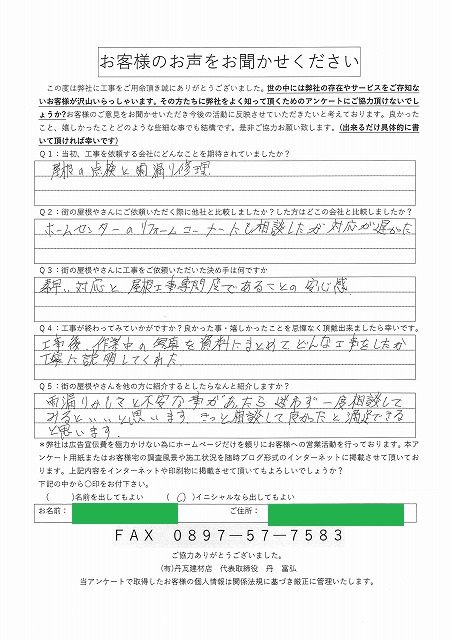 お客様のお声をお聞かせください
この度は弊社に工事をご用命頂き誠にありがとうございました。世の中には弊社の存在やサービスをご存知な
いお客様が沢山いらっしゃいます。その方たちに弊社をよく知って頂くためのアンケートにご協力頂けないでし
ょうか?お客様のご意見をお聞かせいただき今後の活動に反映させていただきたいと考えております。良かった
こと、嬉しかったことどのような些細な事でも結構です。是非ご協力お願い致します。(出来るだけ具体的に書
いて頂ければ幸いです)
Q1:当初、工事を依頼する会社にどんなことを期待されていましたか?
屋根の点検と雨漏り修理
Q2:街の屋根やさんにご依頼いただく際に他社と比較しましたか?した方はどこの会社と比較しましたか?
ホームセンターのリフォームコーナーにも相談したが対応が遅かった
Q3:街の屋根やさんに工事をご依頼いただいた決め手は何ですか
素早い対応と屋根工事専門店であることの安心感
Q4:工事が終わってみていかがですか?良かった事・嬉しかったことを忌憚なく頂戴出来ましたら幸いです。
工事後、作業中の写真を資料にまとめてどんな工事をしたか
丁寧に説明してくれた
Q5:街の屋根やさんを他の方に紹介するとしたらなんと紹介しますか?
雨漏りかしらと不安な事があったら迷わず一度相談して
みるといいと思います。きっと相談して良かったと満足できる
と思います。
*弊社は広告宣伝費を極力かけない為にホームページだけを頼りにお客様への営業活動を行っております。本ア
ンケート用紙またはお客様宅の調査風景や施工状況を随時ブログ形式のインターネットに掲載させて頂いてお
ります。上記内容をインターネットや印刷物に掲載させて頂いてもよろしいでしょうか?
下記の中から〇印をお付下さい。
( )名前を出してもよい (〇)イニシャルなら出してもよい
お名前: ご住所:
FAX 0897-57-7583
ご協力ありがとうございました。
(有)丹瓦建材店 代表取締役 丹 富弘
当アンケートで取得したお客様の個人情報は関係法規に基づき厳正に管理いたします。